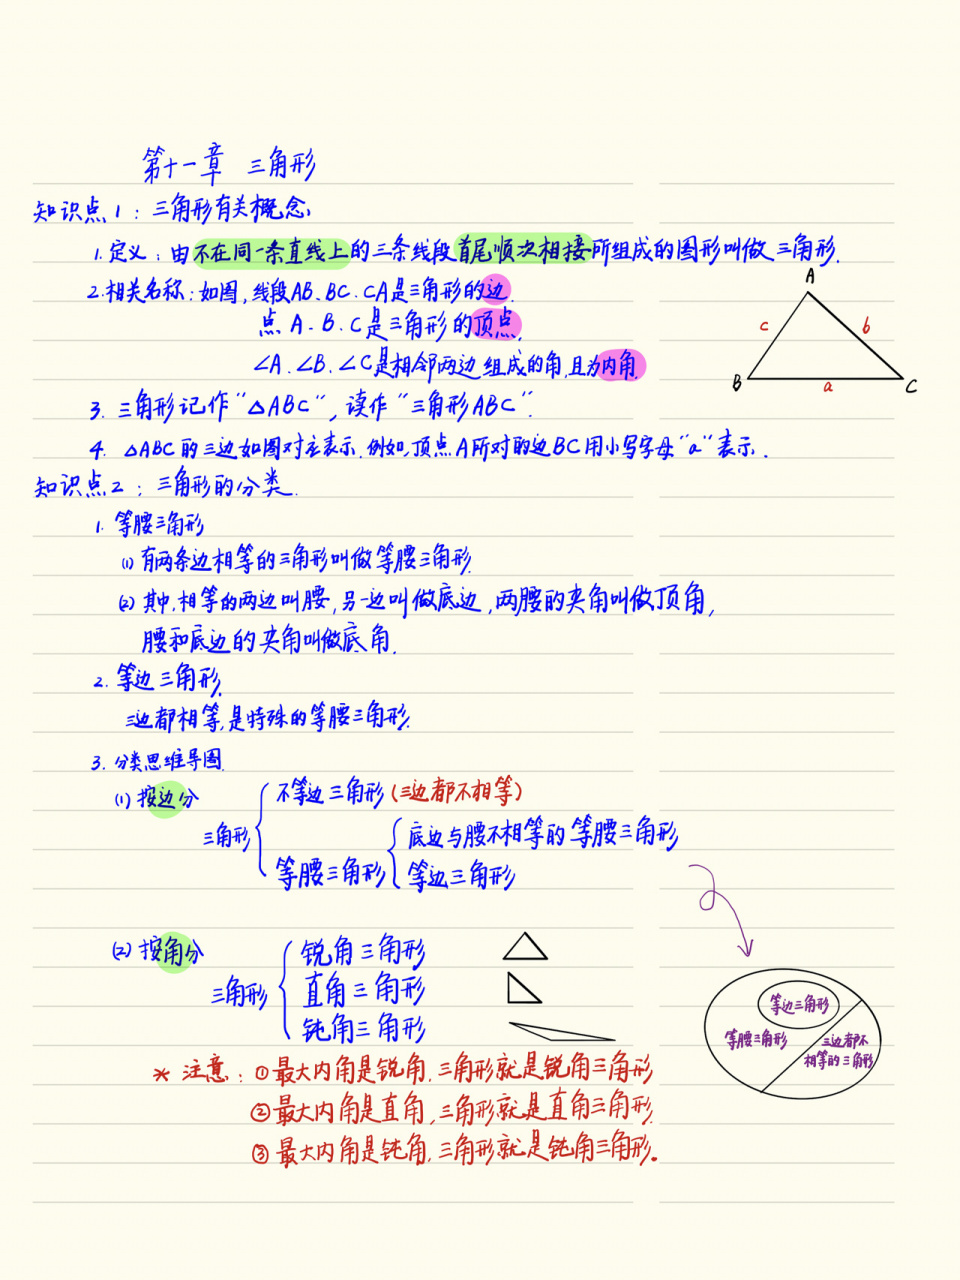 第十一章 三角形
知识点1：三角形有关概念
1. 定义：由不在同一条直线上的三条线段首尾顺次相接所组成的图形叫做三角形.
2.相关名称：如图,线段AB、BC、CA是三角形的边.
点A、B、C是三角形的顶点.
∠A、∠B、∠C是相邻两边组成的角,且为内角.
A
c
b
B
a
C
3. 三角形记作“△ABC”,读作“三角形ABC”.
4. △ABC的三边如图对应表示.例如,顶点A所对的边BC用小写字母“a”表示.
知识点2：三角形的分类.
1. 等腰三角形
(1) 有两条边相等的三角形叫做等腰三角形.
(2) 其中,相等的两边叫腰,另一边叫做底边,两腰的夹角叫做顶角,
腰和底边的夹角叫做底角.
2. 等边三角形.
三边都相等,是特殊的等腰三角形.
3. 分类思维导图
(1) 按边分
三角形
不等边三角形(三边都不相等)
等腰三角形
底边与腰不相等的等腰三角形
等边三角形
(2) 按角分
三角形
锐角三角形
直角三角形
钝角三角形
等边三角形
等腰三角形
三边都不
相等的三角形
* 注意：①最大内角是锐角,三角形就是锐角三角形
②最大内角是直角,三角形就是直角三角形.
③最大内角是钝角,三角形就是钝角三角形.